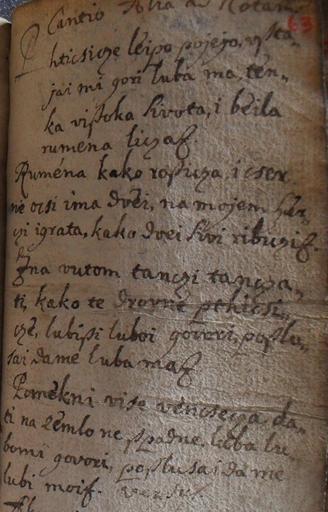 Cantio Alia ad Notam
63
Phticsicze leipo pojejo, vsta-
jai mi gori luba ma, ten-
ka viſſoka ſivota, i beila
rumena liczaſ.
Ruména kako roſicza, i cser
ne ocsi ima dvéi, na mojem
czi igrata, kako dvei ſivi ribiczi
Zna vutom tanczi tancza-
ti, kako te drovne pthicsi-
cze, lubiſi luboi govori, poſlu-
sai da me luba maſ
Pomekni vise véncsecza, da-
ti na zémlo ne spadne, luba lu-
bomi govori, poslusai da me
lubi moiſ.